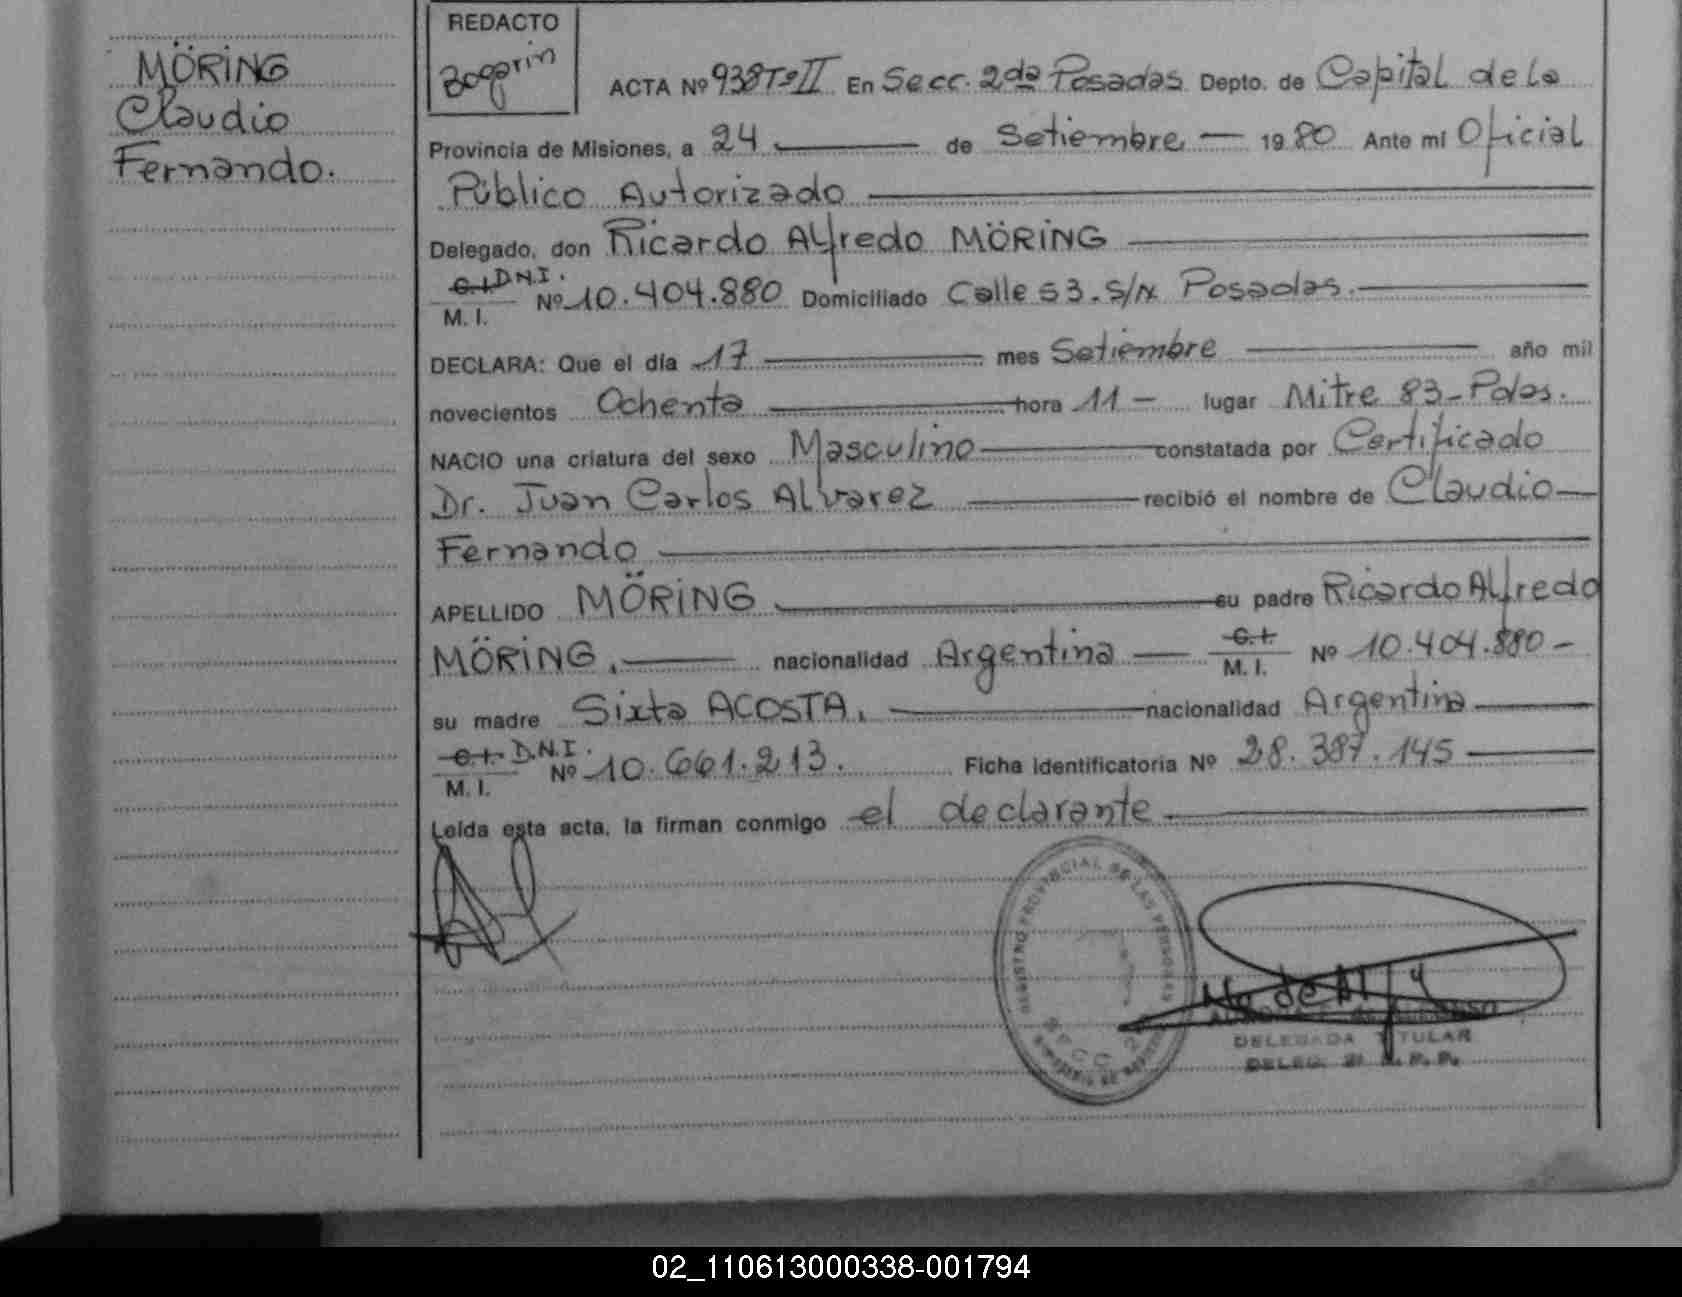 MÖRING
Claudio
Fernando.
REDACTO
ACTA Nº 938 Tº II En Secc. 2da Posadas Depto. de Capital de la
Provincia de Misiones, a 24 de Setiembre 1980 Ante mí Oficial
Público Autorizado
Delegado, don Ricardo Alfredo MÖRING
C.I. D.N.I.
M. I. Nº 10.404.880 Domiciliado Calle 53. S/N Posadas.
DECLARA: Que el día 17 mes Setiembre año mil
novecientos Ochenta hora 11 - lugar Mitre 83 - Pdas.
NACIO una criatura del sexo Masculino constatada por Certificado
Dr. Juan Carlos Alvarez recibió el nombre de Claudio
Fernando
APELLIDO MÖRING su padre Ricardo Alfredo
MÖRING, nacionalidad Argentina C.I. M. I. Nº 10.404.880 -
su madre Sixta ACOSTA, nacionalidad Argentina
C.I. D.N.I.
M. I. Nº 10.661.213. Ficha Identificatoria Nº 28.387.145
Leída esta acta, la firman conmigo el declarante
REGISTRO PROVINCIAL DE LAS PERSONAS
SECC. 2
DELEGADA TITULAR
DELEG. 2ª R. P. P.
02_110613000338-001794